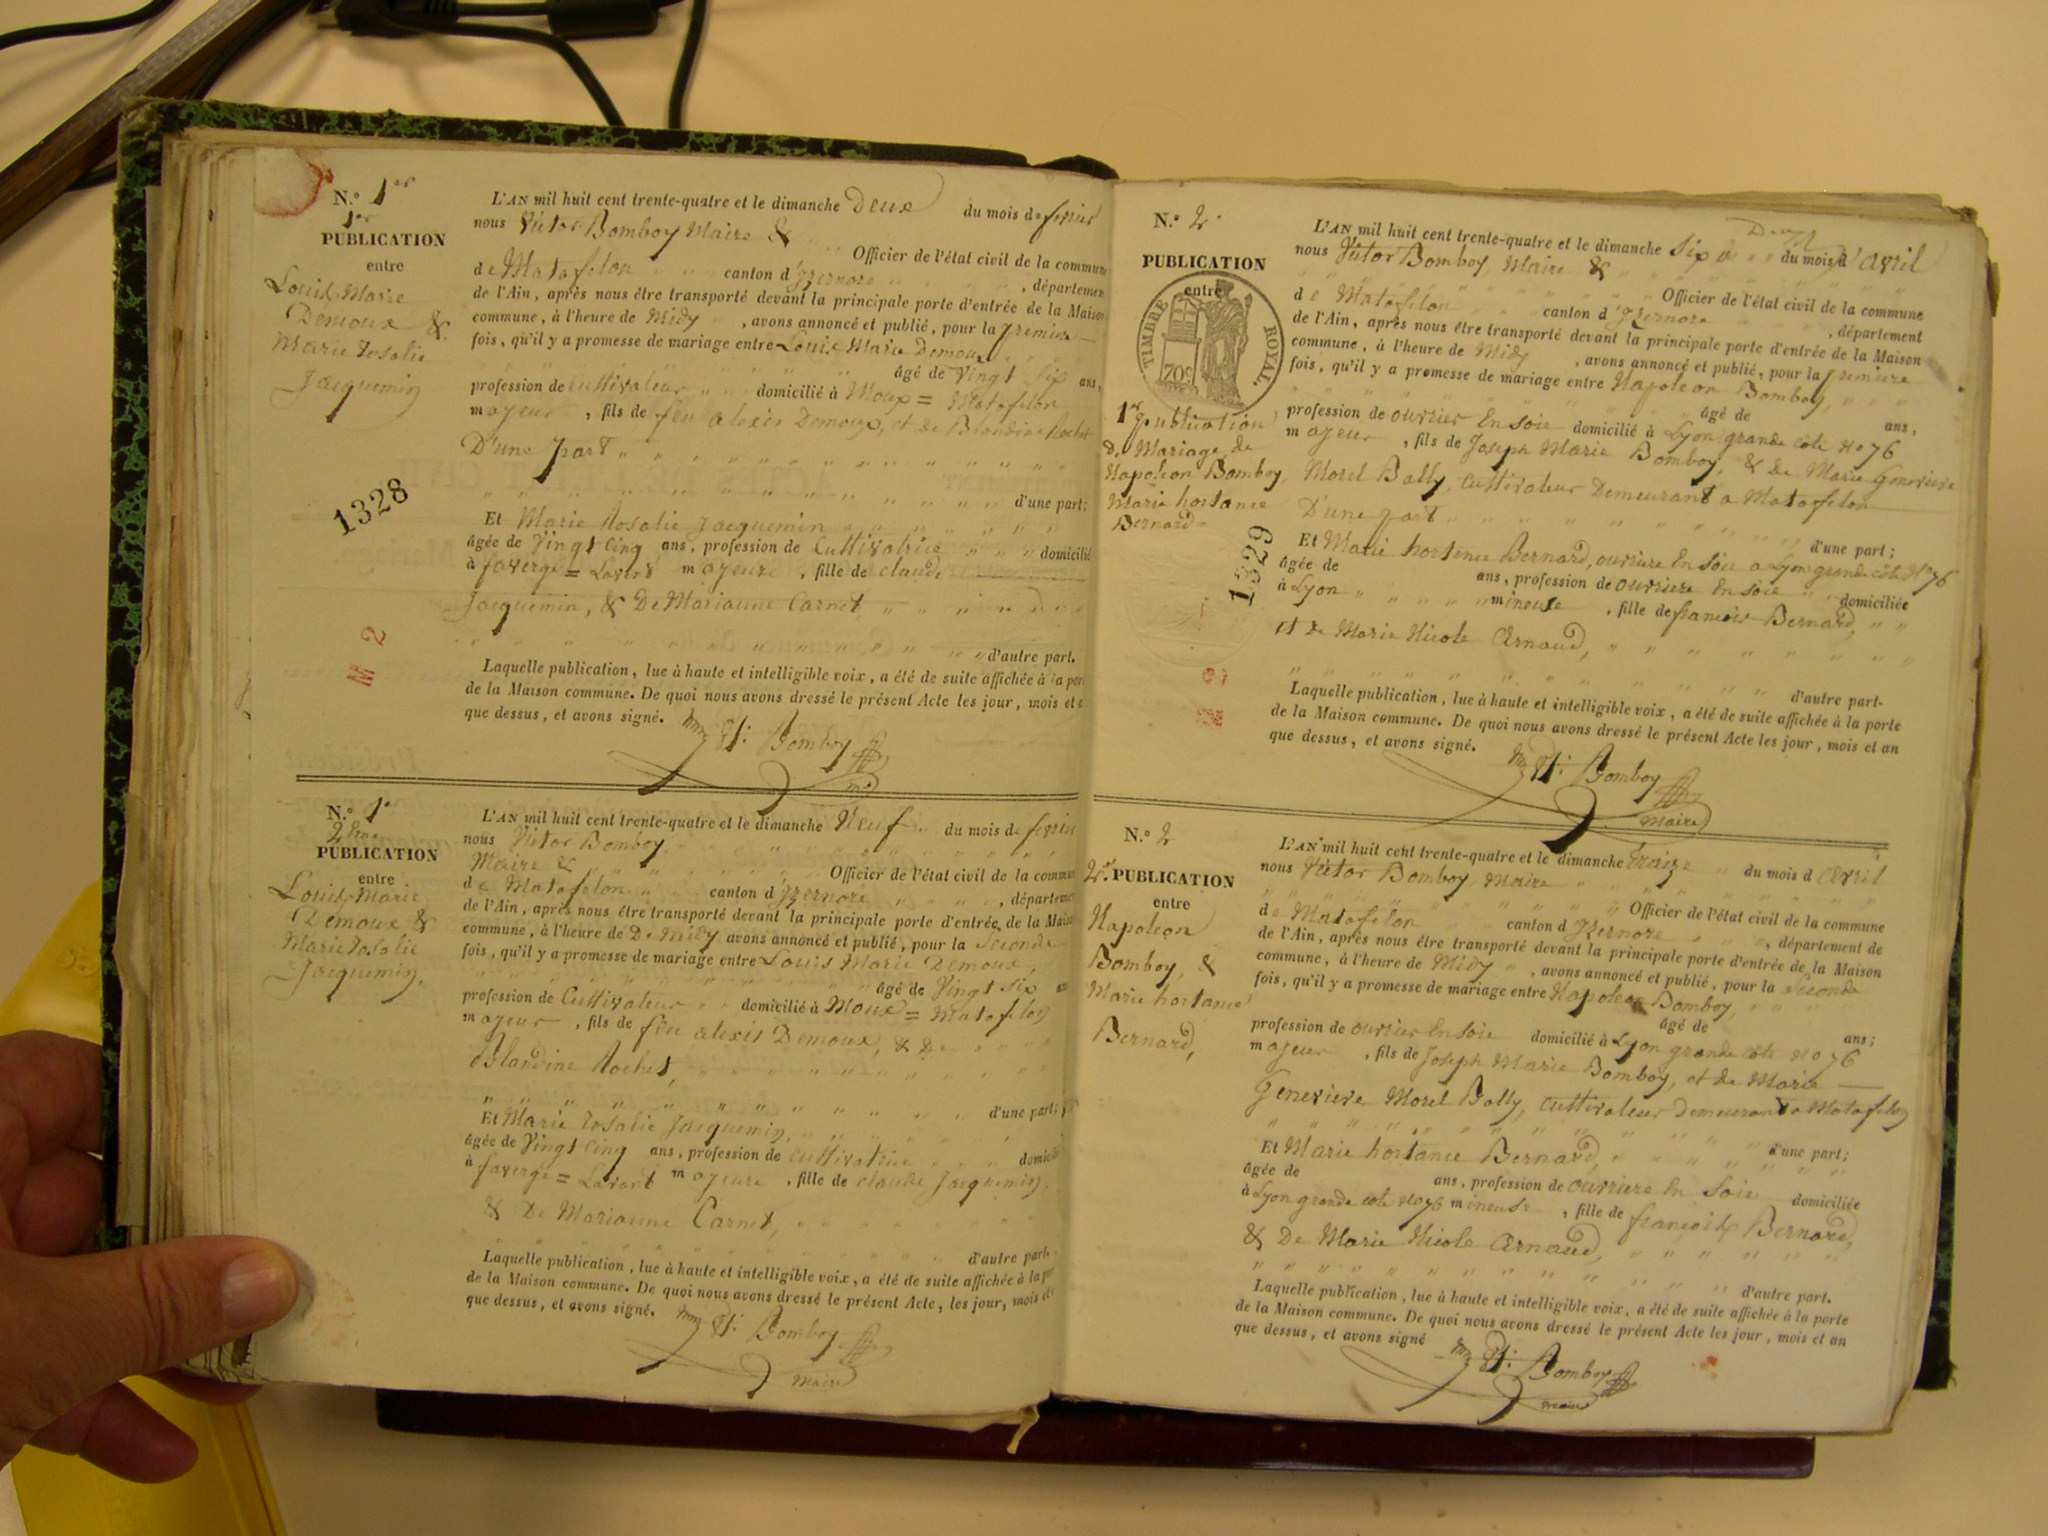 N.º 1er
1er
PUBLICATION
entre
Louis Marie
Demoux &
Marie Rosalie
Jacquemin
1328
M 2
L'AN mil huit cent trente-quatre et le dimanche Deux du mois de fevrier
nous Victor Bomboy Maire &
Officier de l'état civil de la commune
de Matafelon canton d'Izernore , départemen
de l'Ain, après nous être transporté devant la principale porte d'entrée de la Maison
commune, à l'heure de Midy , avons annoncé et publié, pour la premiere
fois, qu'il y a promesse de mariage entre Louis Marie Demoux
âgé de Vingt Six ans,
profession de Cultivateur domicilié à Moux = Matafelon
majeur , fils de feu alexis Demoux, et de Blandine Rochet
D'une part
d'une part;
Et Marie Rosalie Jacquemin
âgée de Vingt Cinq ans, profession de Cultivatrice domicilié
à faverge = Lavant majeure , fille de claude
Jacquemin, & De Marianne Carnet,
d'autre part.
Laquelle publication, lue à haute et intelligible voix, a été de suite affichée à la por
de la Maison commune. De quoi nous avons dressé le présent Acte les jour, mois et
que dessus, et avons signé.
Bomboy
N.º 1er
2eme
PUBLICATION
entre
Louis Marie
Demoux &
Marie Rosalie
Jacquemin,
L'AN mil huit cent trente-quatre et le dimanche Neuf du mois de fevrier
nous Victor Bomboy
Maire & Officier de l'état civil de la commun
de Matafelon canton d'Izernore , départeme
de l'Ain, après nous être transporté devant la principale porte d'entrée de la Maiso
commune, à l'heure de De Midy avons annoncé et publié, pour la Seconde
fois, qu'il y a promesse de mariage entre Louis Marie Demoux,
âgé de Vingt Six an
profession de Cultivateur domicilié à Moux = Matafelon
majeur , fils de feu alexis Demoux, & De
Blandine Rochet,
d'une part;
Et Marie Rosalie Jacquemin,
âgée de Vingt Cinq ans, profession de Cultivatrice domicilié
à faverge = Lavant majeure , fille de claude Jacquemin,
& De Marianne Carnet,
d'autre part.
Laquelle publication, lue à haute et intelligible voix, a été de suite affichée à la por
de la Maison commune. De quoi nous avons dressé le présent Acte, les jour, mois et
que dessus, et avons signé.
Bomboy
Maire
N.º 2
PUBLICATION
entre
TIMBRE ROYAL.
70c
1re publication
de Mariage de
Napoleon Bomboy,
Marie hortance
Bernard
1329
L'AN mil huit cent trente-quatre et le dimanche Six du mois d'avril
nous Victor Bomboy, Maire &
Officier de l'état civil de la commune
de Matafelon canton d'Izernore , département
de l'Ain, après nous être transporté devant la principale porte d'entrée de la Maison
commune, à l'heure de Midy , avons annoncé et publié, pour la premiere
fois, qu'il y a promesse de mariage entre Napoleon Bomboy,
âgé de ans,
profession de ouvrier En soie domicilié à Lyon grande côte No 76
majeur , fils de Joseph Marie Bomboy, & de Marie Genevieve
Morel Bally, Cultivateur Demeurant a Matafelon
D'une part
d'une part;
Et Marie hortence Bernard, ouvriere En soie a Lyon grande côte No 76
âgée de ans, profession de ouvriere En soie domiciliée
à Lyon mineure , fille de francois Bernard,
et de Marie Nicole Arnaud,
d'autre part.
Laquelle publication, lue à haute et intelligible voix, a été de suite affichée à la porte
de la Maison commune. De quoi nous avons dressé le présent Acte les jour, mois et an
que dessus, et avons signé.
Bomboy
Maire
N.º 2
2e PUBLICATION
entre
Napoleon
Bomboy, &
Marie hortance
Bernard,
L'AN mil huit cent trente-quatre et le dimanche Traize du mois d avril
nous Victor Bomboy, Maire
Officier de l'état civil de la commune
de Matafelon canton d'Izernore , département de
de l'Ain, après nous être transporté devant la principale porte d'entrée de la Maison
commune, à l'heure de Midy , avons annoncé et publié, pour la Seconde
fois, qu'il y a promesse de mariage entre Napoleon Bomboy,
âgé de ans;
profession de ouvrier En soie domicilié à Lyon grande côte No 76
majeur , fils de Joseph Marie Bomboy, et de Marie
Genevieve Morel Bally, Cultivateur Demeurant a Matafelon
d'une part;
Et Marie hortance Bernard,
âgée de ans, profession de ouvriere En Soie domiciliée
à Lyon grande côte No 76 mineure , fille de francois Bernard,
& De Marie Nicole Arnaud,
d'autre part.
Laquelle publication, lue à haute et intelligible voix, a été de suite affichée à la porte
de la Maison commune. De quoi nous avons dressé le présent Acte les jour, mois et an
que dessus, et avons signé
Bomboy
maire